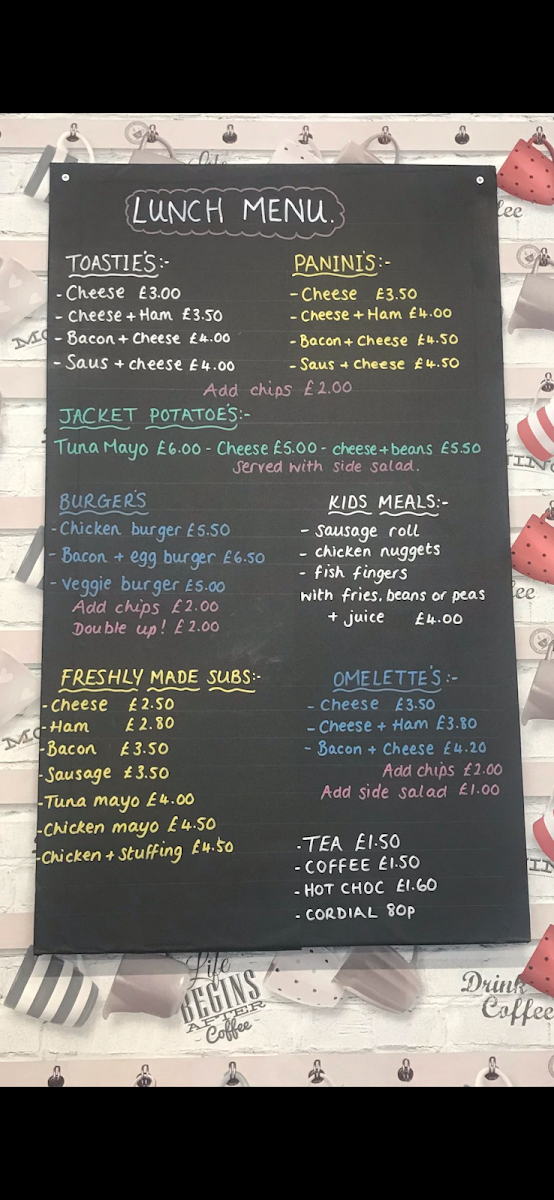 LUNCH MENU.
TOASTIE'S:-
- Cheese £3.00
- Cheese + Ham £3.50
- Bacon + Cheese £4.00
- Saus + cheese £4.00
PANINI'S:-
- Cheese £3.50
- Cheese + Ham £4.00
- Bacon + Cheese £4.50
- Saus + Cheese £4.50
Add chips £2.00
JACKET POTATOE'S:-
Tuna Mayo £6.00 - Cheese £5.00 - cheese + beans £5.50
Served with side salad.
BURGER'S
- Chicken burger £5.50
- Bacon + egg burger £6.50
- Veggie burger £5.00
Add chips £2.00
Double up! £2.00
KIDS MEALS:-
- Sausage roll
- chicken nuggets
- fish fingers
with fries, beans or peas
+ juice £4.00
FRESHLY MADE SUBS:-
- Cheese £2.50
- Ham £2.80
- Bacon £3.50
- Sausage £3.50
- Tuna mayo £4.00
- Chicken mayo £4.50
- Chicken + Stuffing £4.50
OMELETTE'S:-
- Cheese £3.50
- Cheese + Ham £3.80
- Bacon + Cheese £4.20
Add chips £2.00
Add side salad £1.00
- TEA £1.50
- COFFEE £1.50
- HOT CHOC £1.60
- CORDIAL 80P
Life
BEGINS
AFTER
Coffee
Drink
Coffee